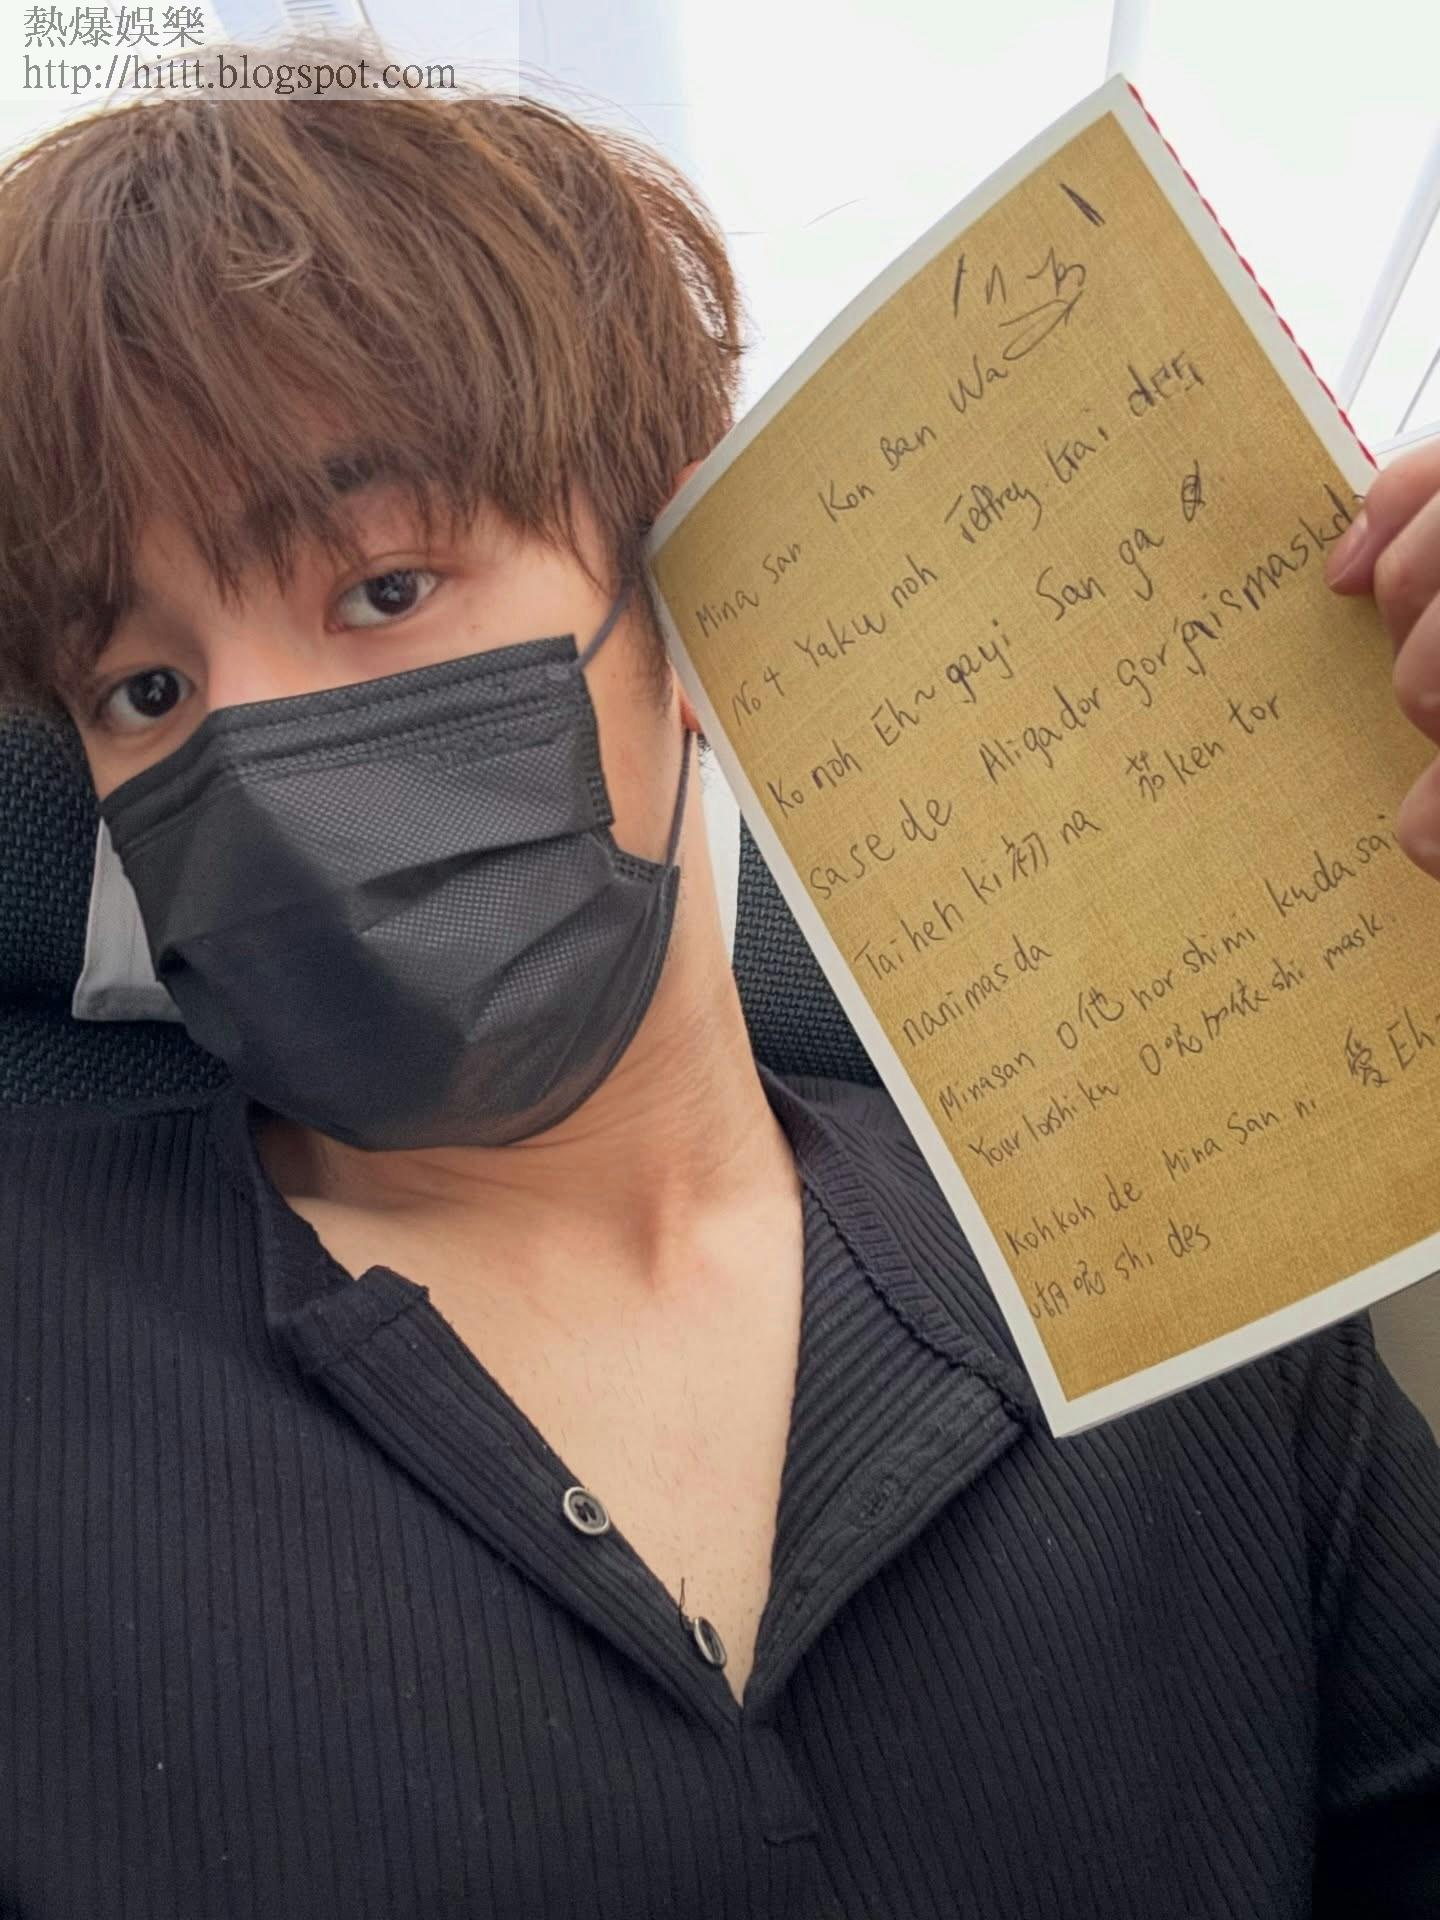 熱爆娛樂
http://hittt.blogspot.com
Mina san Kon Ban Wa
No 4 Yaku noh Jeffrey trai des
Ko noh Eh~ gayi San ga
sase de Aligador gor gais mask da
Tai heh ki 初 na 茄 ken tor
nanimasda
Minasan O 他 nor shimi kudasai
Your loshiku O 呢 加 依 shi mask.
Kohkoh de Mina San ni 愛 Eh~
胡 呢 shi des